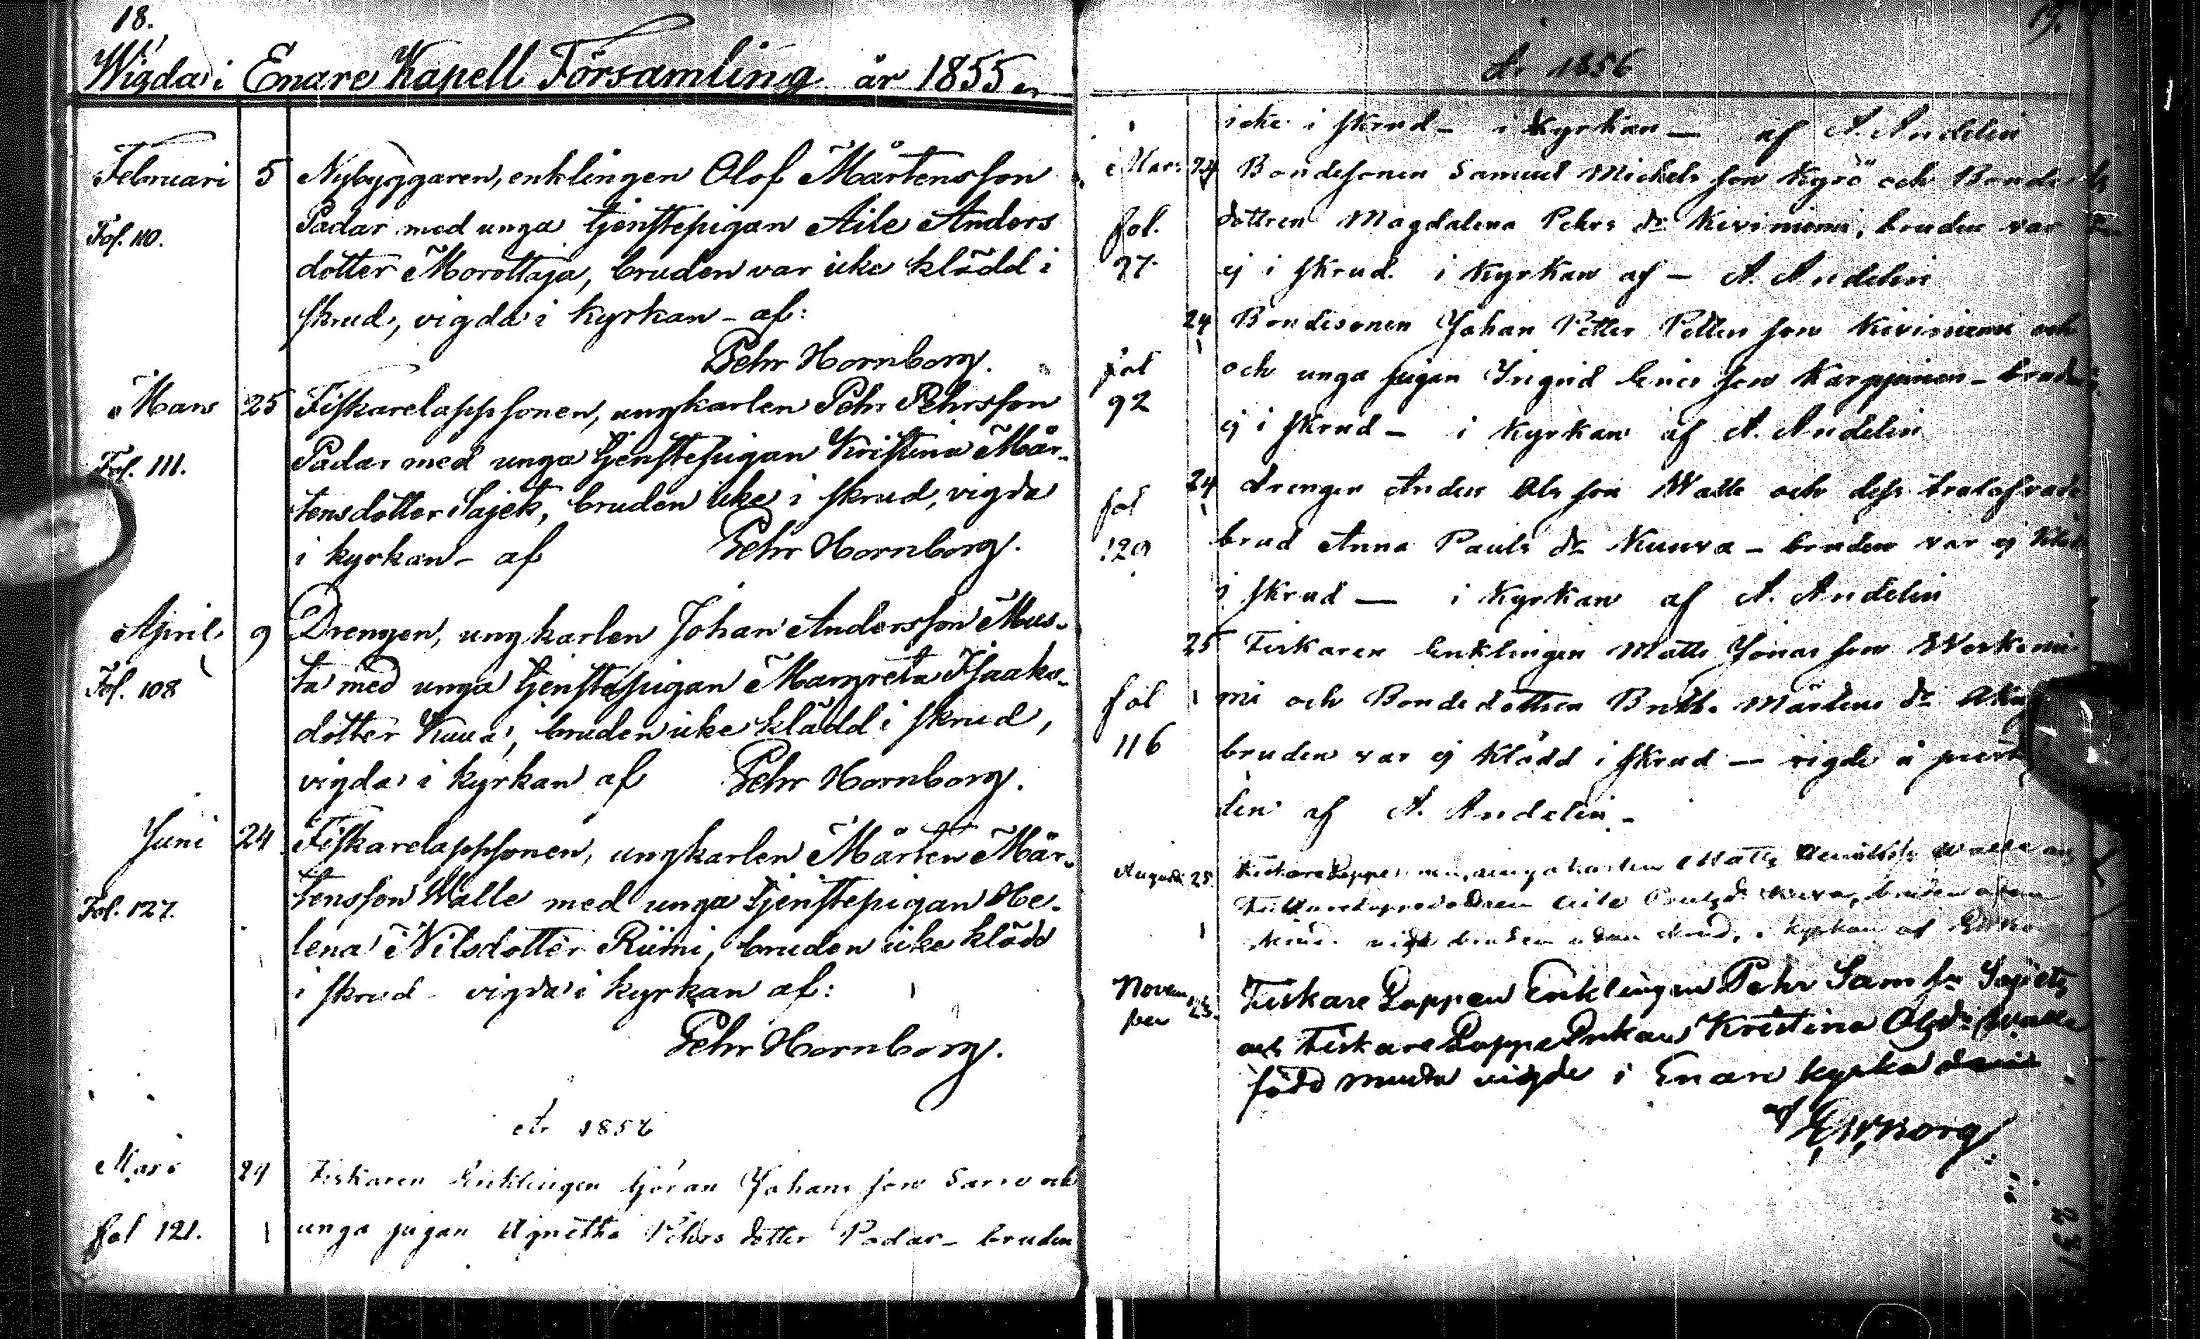 18.
Wigda i Enare Kapell Församling år 1855
Februari 5 Nybyggaren, enklingen Olof Mårtensson
Fol. 110. Padar med unga tjenstepigan Aile Anders
dotter Morottaja, bruden var icke klädd i
skrud, vigda i kyrkan - af:
Pehr Hornborg.
Mars 25 Fiskarelappsonen, ungkarlen Pehr Pehrsson
Fol. 111. Padar med unga tjenstepigan Kristina Mår-
tensdotter Sajet, bruden icke i skrud, vigda
i kyrkan - af Pehr Hornborg.
April 9 Drengen, ungkarlen Johan Andersson Mus-
Fol. 108 ta med unga tjenstepigan Margreta Isaaks-
dotter Kuua, bruden icke klädd i skrud,
vigda i kyrkan af Pehr Hornborg.
Juni 24 Fiskarelappsonen, ungkarlen Mårten Mår-
Fol. 127. tensson Walle med unga tjenstepigan He-
lena Nilsdotter Riimi, bruden icke klädd
i skrud - vigda i kyrkan af:
Pehr Hornborg.
År 1856
Mars 24 Fiskaren Enklingen Göran Johans son Sarre och
fol 121. unga pigan Agnetha Pehrs dotter Padar - bruden
19.
År 1856
icke i skrud - i Kyrkan - af A. Andelin
Mars 24 Bondesonen Samuel Michels son Kyrö och Bonde
fol. dottren Magdalena Pehrs dr Kiviniemi, bruden var
27. ej i skrud. i Kyrkan af - A. Andelin
24 Bondesonen Johan Petter Petters son Kiviniemi och
fol och unga pigan Ingrid Erics son Karppinen -
92 ej i skrud - i Kyrkan af A. Andelin
24 drengen Anders Ols son Walle och dess trolofvade
fol
129 brud Anna Pauls dr Kuuva - bruden var ej
i skrud - i Kyrkan af A. Andelin
25 Fiskaren Enklingen Matts Jonas son
fol och Bondedottren Mårtens dr
116 bruden var ej klädd i skrud - vigde i
den af A. Andelin -
Augusti 25. ungakarlen Matts Walle
bruden utan
i kyrkan af
Novem
ber 23. Fiskare Lappen Enklingen Pehr Sam sn Sajets
och Fiskare Lappe Enkan Kristina Olsdr Walle
född Musta vigde i Enare kyrka
af E. W. Borg
231.